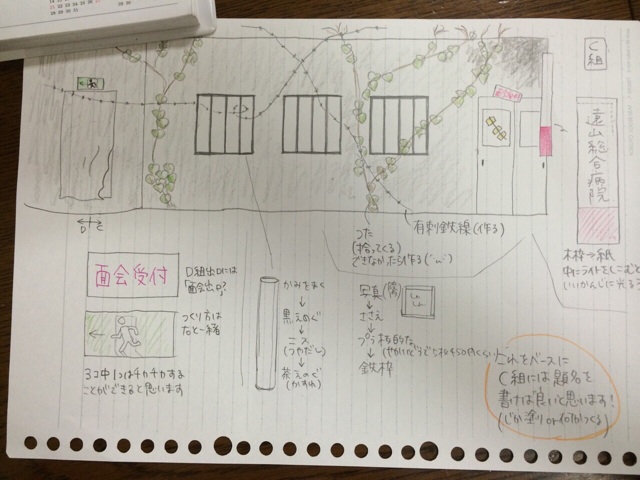 C組
遠山総合病院
木枠→紙
中にライトをしこむと
いいかんじに光る
有刺鉄線(作る)
つた
(捨ってくる)
できなかったら作る
D
C
面会受付
D組出口には
「面会出口」
つくり方は
右と一緒
3コ中1つはチカチカする
ことができると思います
かみをまく
↓
黒えのぐ
↓
ニス
(つやだし)
↓
茶えのぐ
(かすれ)
写真
↓
ささえ
↓
プラ板的な
↓
鉄枠
これをベースに
C組には題名を
書けば良いと思います!